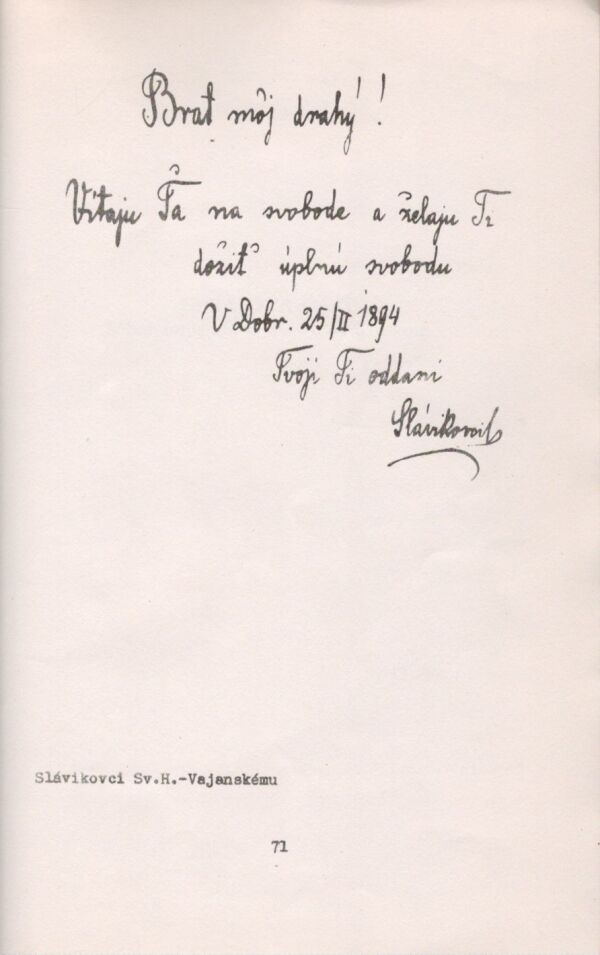 Brat môj drahý!
Vítaju Ťa na svobode a želaju Ti
dožiť úplnú svobodu
V Dobr. 25/II 1894
Tvoji Ti oddaní
Slávikovci
Slávikovci Sv.H.-Vajanskému
71